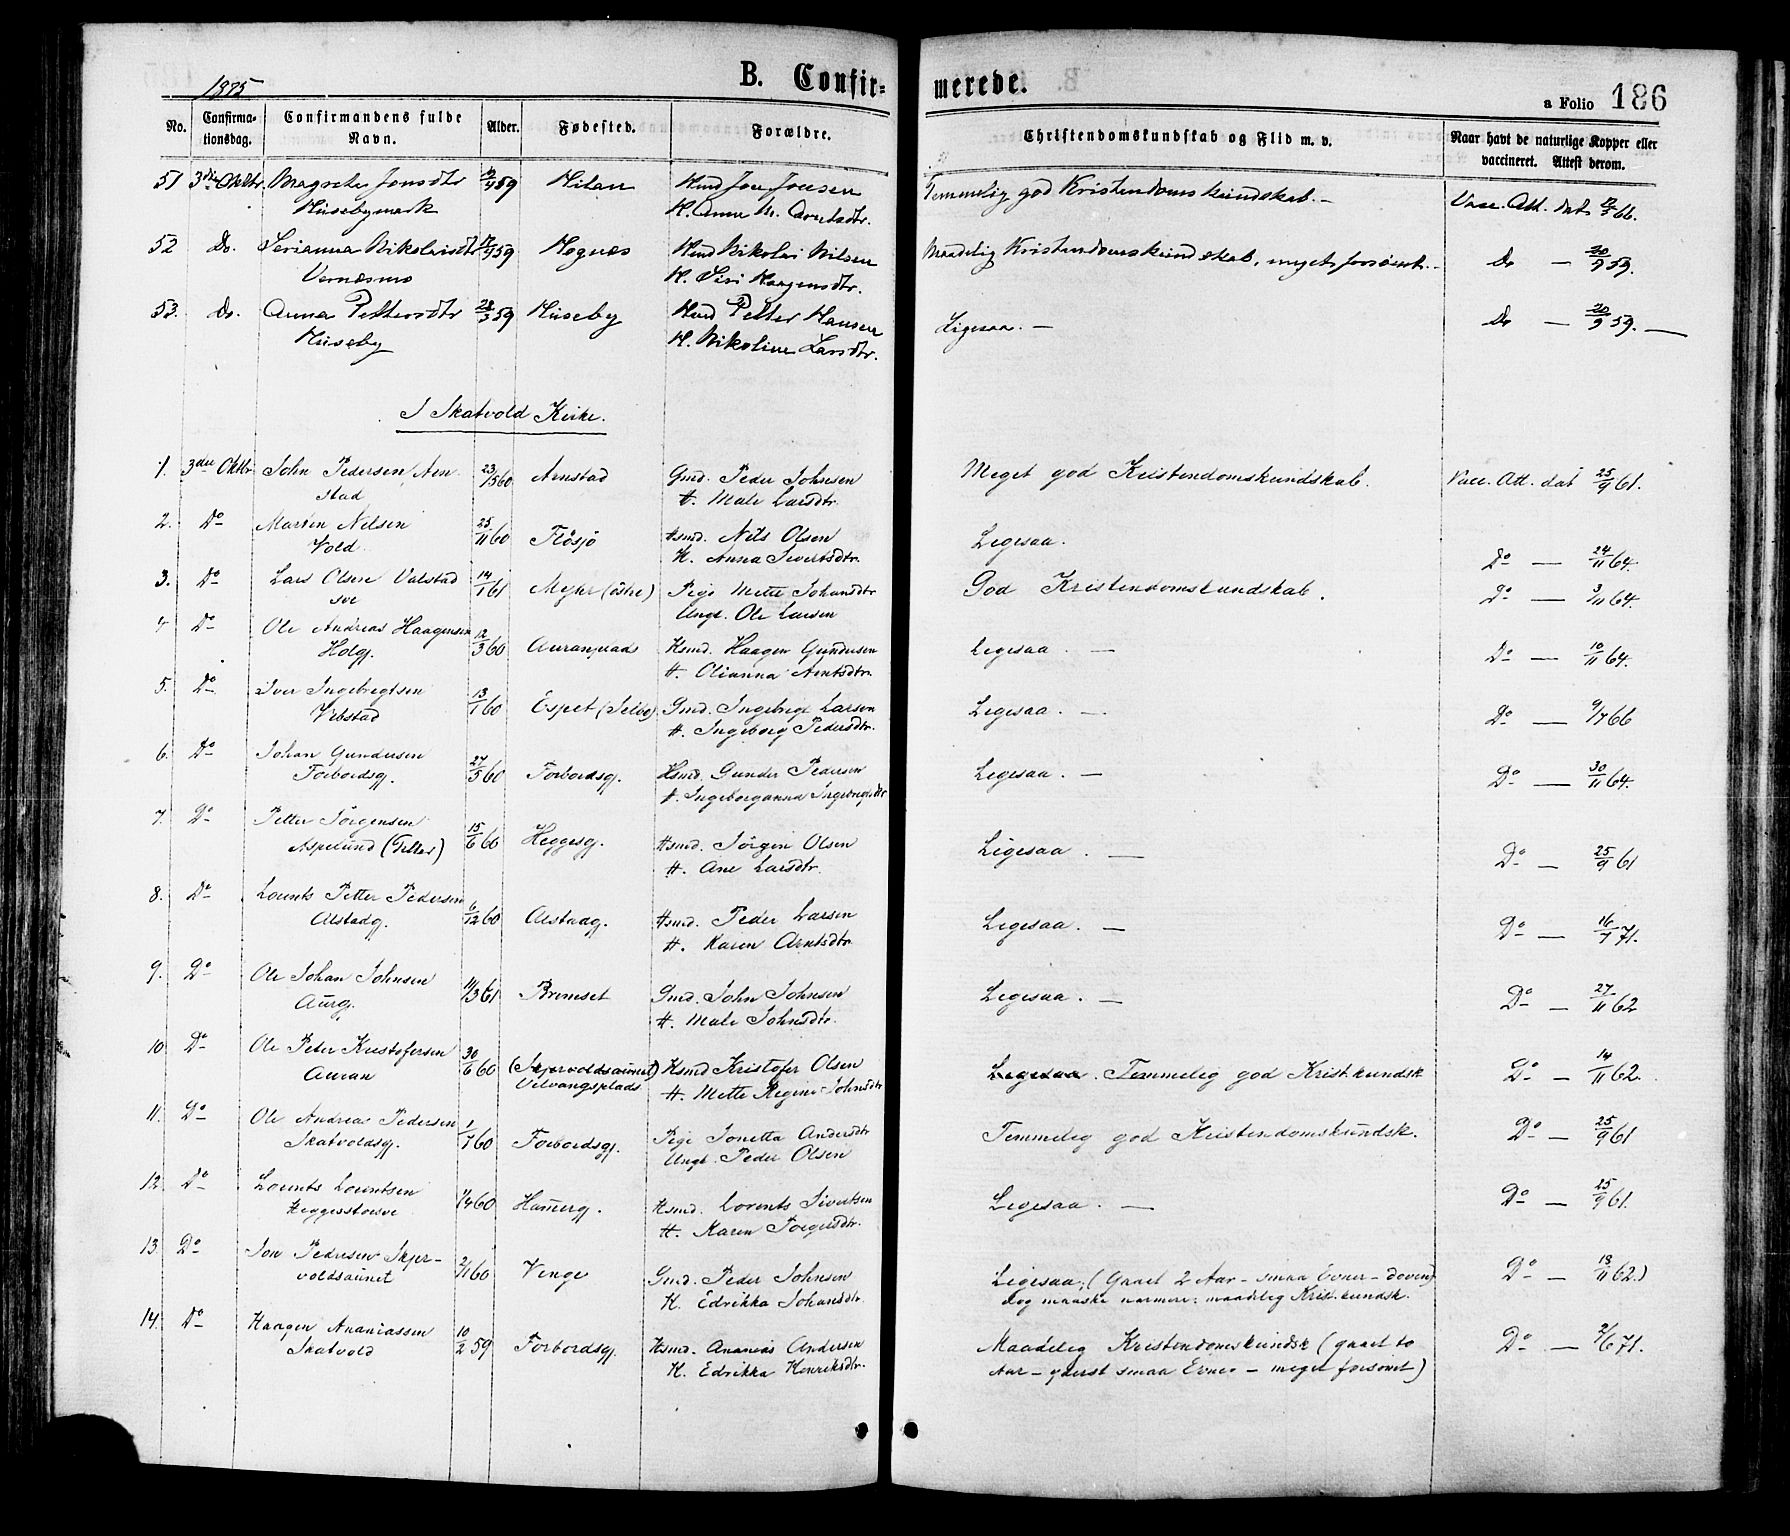 1875
B. Confir=
merede.
a Folio 186
No. Confirma-tionsdag. Confirmandens fulde Navn. Alder. Fødested. Forældre. Christendomskundskab og Flid m. v. Naar havt de naturlige Kopper eller vaccineret. Attest derom.
51 3die Oktbr. Magrete Jonsdtr 59 Hilan Hmd Jon Jonsen Temmelig god Kristendomskundskab. — Vacc. Att. dat. 66.
Husebymark H. Anne M. Arntsdtr.
52 Do. Serianna Nikolaisdtr 59 Hognes Hmd Nikolai Nilsen Maadelig Kristendomskundskab, meget forsømt. — Do — 20/9 59.
Vernesmo H. Siri Haagensdtr.
53. Do. Anna Pettersdtr 28/3 59 Huseby Hmd Petter Hansen Ligesaa. — Do — 20/9 59. —
Huseby H. Nikoline Larsdtr.
I Skatvold Kirke.
1. 3die Oktbr John Pedersen Arn- 23/5 60 Arnstad Gmd. Peder Johnsen Meget god Kristendomskundskab. Vacc. Att. dat 25/9 61.
stad H. Male Larsdtr.
2. Do Marten Nilsen 25/11 60 Flösjö Hsmd. Nils Olsen Ligesaa. Do — 24/11 64.
Vold. H. Anna Sivertsdtr.
3. Do Lars Olsen Valstad 14/1 61 Myhr (östre) Pige Mette Johansdtr God Kristendomskundskab. Do — 3/11 64.
sve Ungk. Ole Larsen
4 Do Ole Andreas Haagensen 12/3 60 Auranplads Hsmd. Haagen Gundersen Ligesaa. — Do — 10/11 64.
Holg. H. Olianna Arntsdtr.
5. Do Iver Ingebregtsen 13/1 60 Espet (Selbo) Gmd. Ingebrigt Larsen Ligesaa. — Do — 9/7 66
Vebstad H. Ingeborg Pedersdtr.
6. Do Johan Gundersen 27/5 60 Forbordsg. Hsmd. Gunder Pedersen Ligesaa. — Do — 30/11 64.
Forbordsg. H. Ingeborganna Ingebregtsdtr
7. Do Petter Jörgensen 15/6 60 Heggesg. Hsmd. Jörgen Olsen Ligesaa. — Do — 25/9 61
Aspelund (Teller) H. Ane Larsdtr.
8. Do Lorents Petter Pedersen 6/12 60 Alstadg. Hsmd. Peder Larsen Ligesaa. — Do — 16/7 71.
Alstadg. H. Karen Arntsdtr
9. Do Ole Johan Johnsen 11/3 61 Bremset Gmd. John Johnsen Ligesaa. — Do — 27/11 62
Aurg. H. Male Johnsdtr.
10 Do Ole Peter Kristofersen 30/6 60 (Skjervoldsaunet) Hsmd Kristofer Olsen Ligesaa. Temmelig god Krist.kundsk Do — 14/11 62.
Auran Velvangsplads H. Mette Regine Johnsdtr
11. Do Ole Andreas Pedersen 1/7 60 Forbordsg. Pige Jonetta Andersdtr Temmelig god Kristendomskundsk. Do — 25/9 61
Skatvoldsg. Ungk. Peder Olsen
12. Do Lorents Lorentsen 1/4 60 Hammerg. Hsmd. Lorents Sivertsen Ligesaa. — Do — 25/9 61.
H. Karen Torgersdtr.
13. Do Jon Pedersen Skjer- 2/1 60 Venge Gmd. Peder Johnsen Ligesaa; (Gaaet 2 Aar – smaa Evner – doven) Do — 13/11 62.)
voldsaunet H. Edrikka Johansdtr. dog maaske nærmere: maadelig Krist.kundsk.
14. Do Haagen Ananiassen 10/2 59 Forbordsg. Hsmd. Ananias Andersen Maadelig Kristendomskundsk (gaaet to Do — 2/6 71.
Skatvold H. Edrikka Henriksdtr. Aar – yderst smaa Evner – meget forsømt)